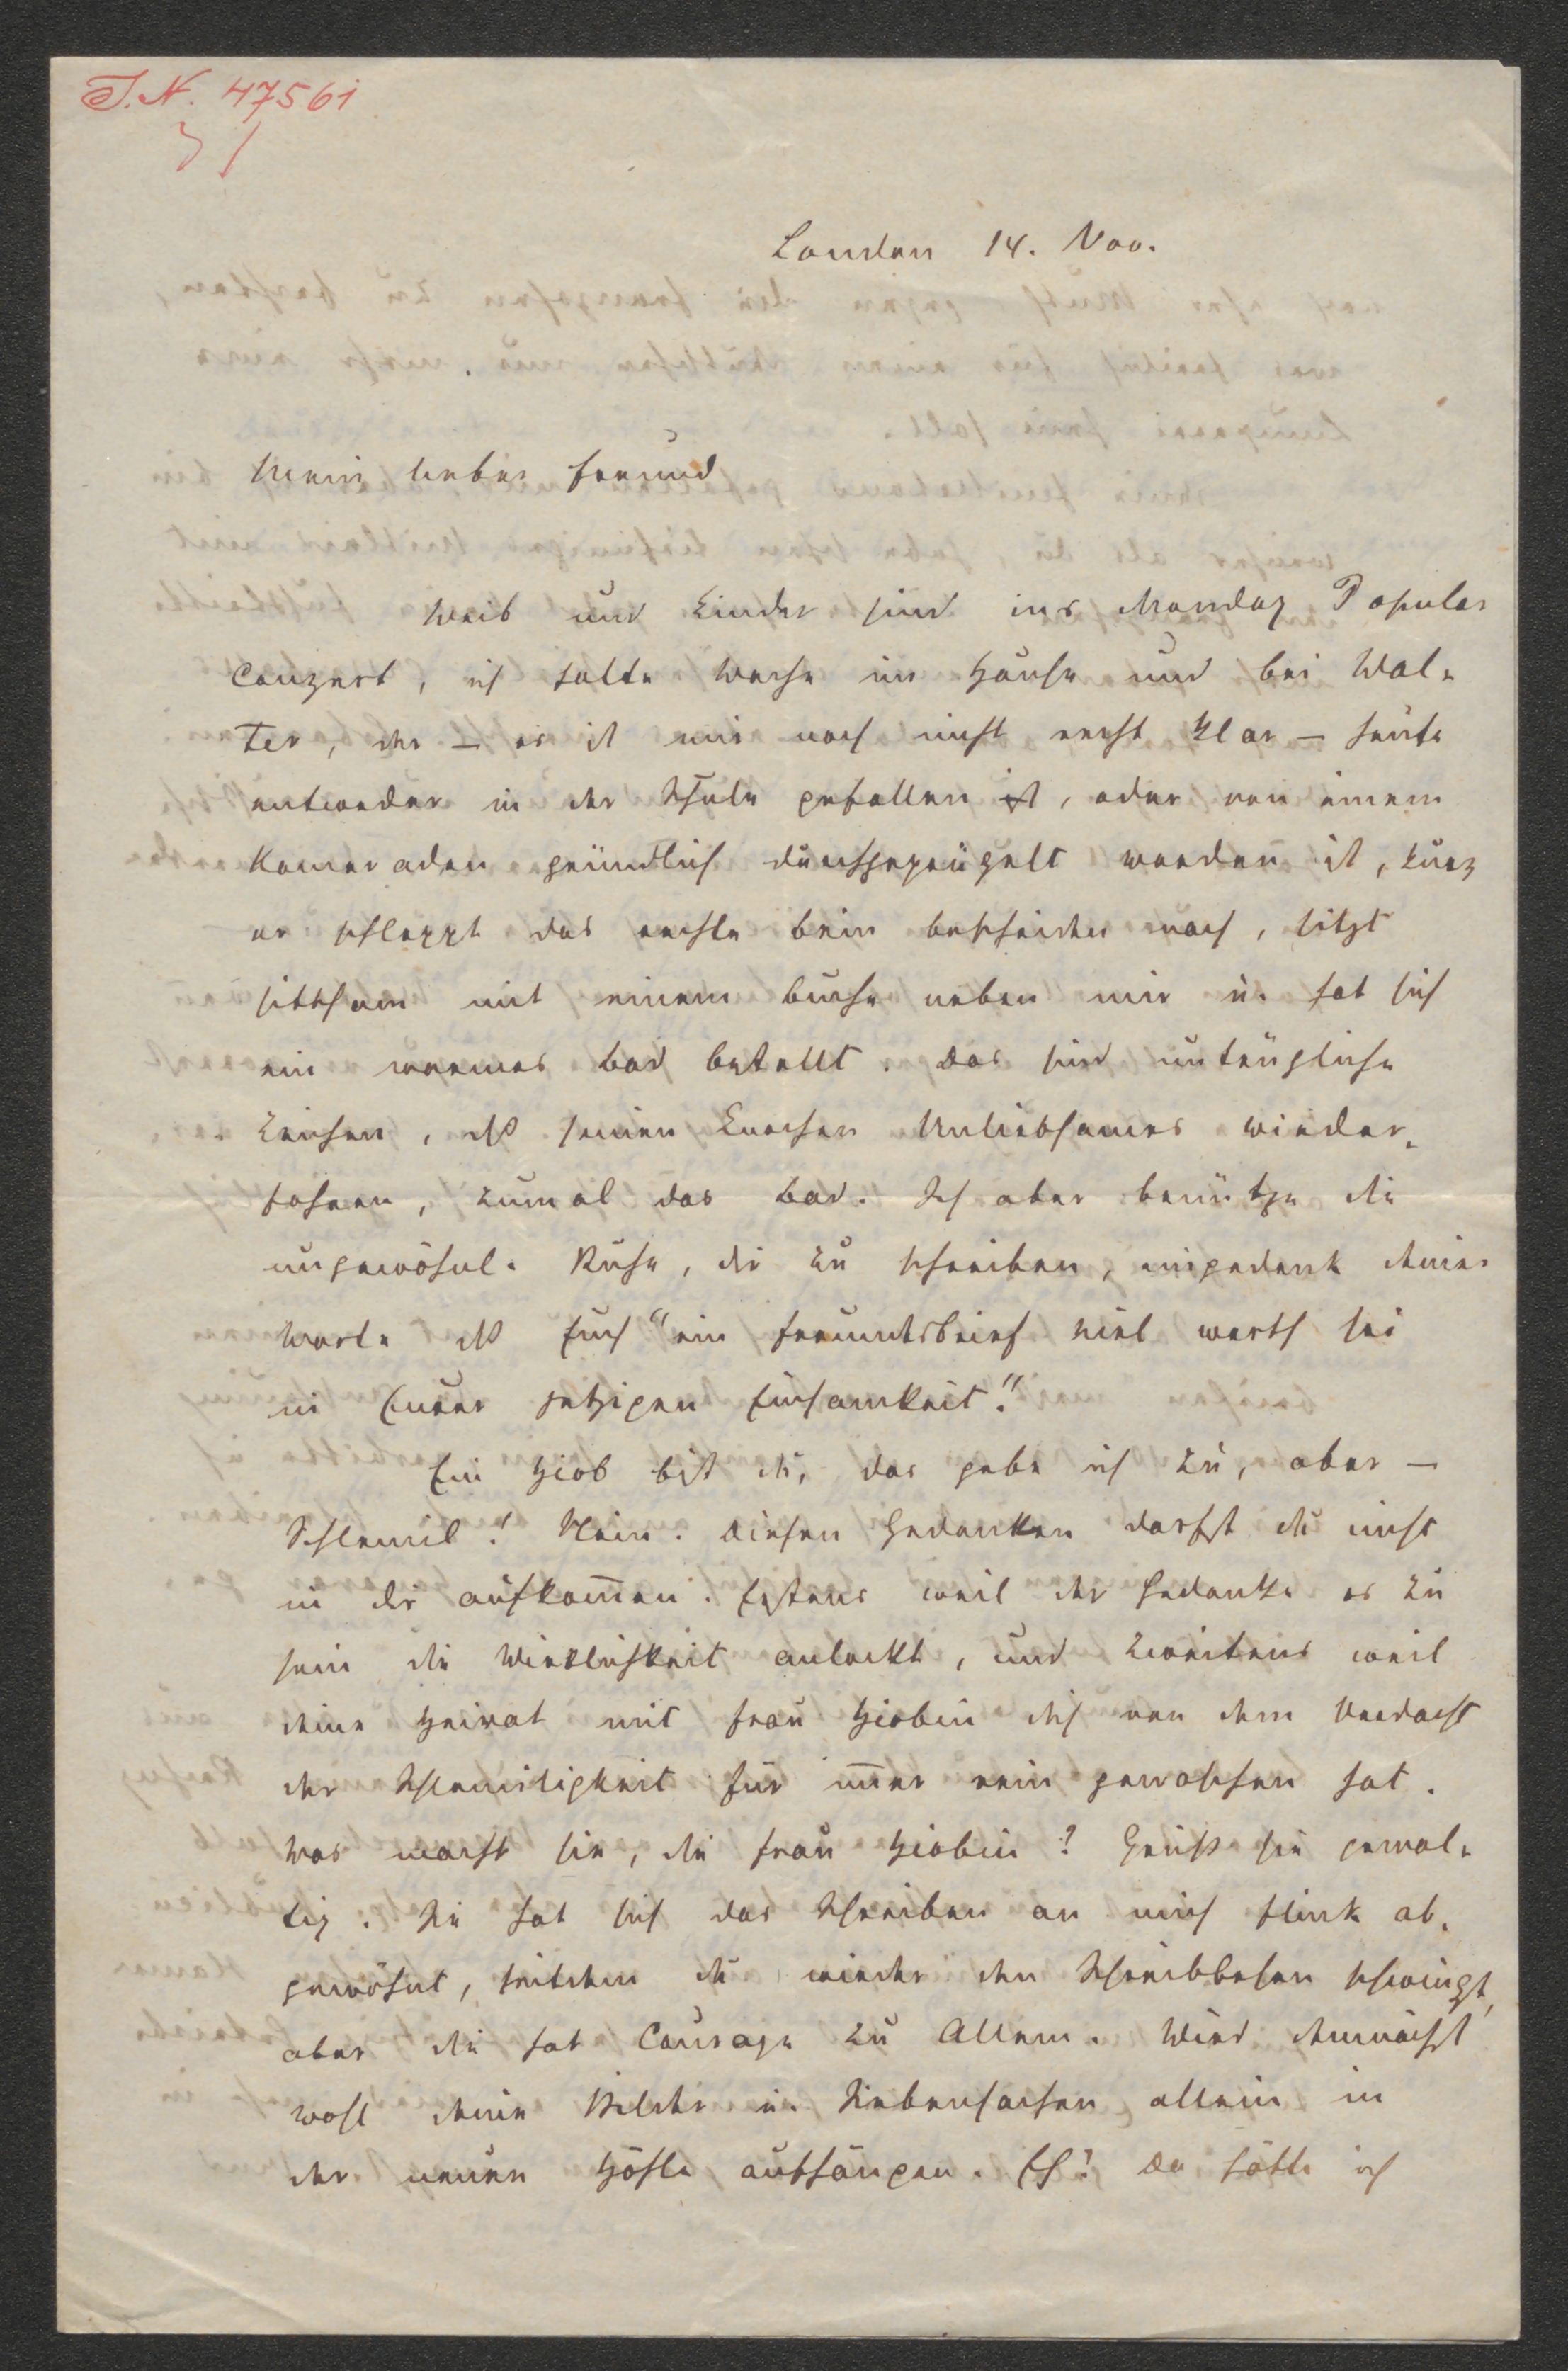 I.N. 47561
London 14. Nov.
Mein lieber Freund
Weib und Kinder sind ins Monday Popular
Conzert, ich halte Wache im Hause und bei Wal-
ter, der – es ist mir noch nicht recht klar – heute
entweder in der Schule gefallen ist, oder von einem
Kameraden gründlich durchgeprügelt worden ist, kurz
er schleppt das rechte Bein bescheiden nach, sitzt
sittsam mit einem Buche neben mir u. hat sich
ein warmes Bad bestellt. Das sind untrügliche
Zeichen, dß seinen Knochen Unliebsames wieder-
fahren, zumal das Bad. Ich aber benütze die
ungewöhnl. Ruhe, dir zu schreiben, eingedenk deiner
Worte dß Euch "ein Freundesbrief viel werth sei
in Eurer jetzigen Einsamkeit."
Ein Hiob bist du, das gebe ich zu, aber –
Schlemil! Nein. Diesen Gedanken darfst du nicht
in dir aufkom̅en. Erstens weil der Gedanke es zu
sein die Wirklichkeit anlockt, und zweitens weil
deine Heirat mit Frau Hiobin dich von dem Verdacht
der Schlemiligkeit für im̅er rein gewaschen hat.
Was macht sie, die Frau Hiobin? Grüß sie gewal-
tig. Sie hat sich das Schreiben an mich flink ab-
gewöhnt, seitdem du wieder den Schreibbesen schwingst,
aber die hat Courage zu Allem. Wird demnächst
wohl deine Bilder u. Siebensachen allein in
der neuen Höhle aufhängen. Eh! da hätte ich